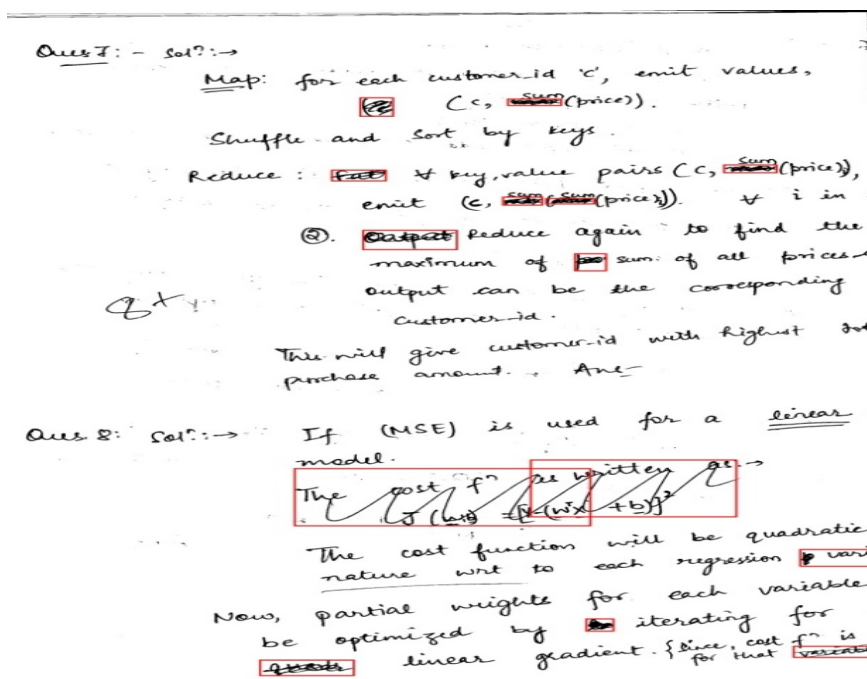 Ques 7: - Solⁿ: →
Map: for each customer_id 'c', emit values,
(c, sum(price)).
Shuffle and Sort by keys.
Reduce: ∀ key, value pairs (c, sum(price)i),
emit (c, sum(sum(price)i)). ∀ i in
②. Reduce again to find the
maximum of sum of all prices.
output can be the corresponding
customer_id.
This will give customer-id with highest
purchase amount. Ans-
Ques 8: Solⁿ: → If (MSE) is used for a linear
model.
The cost fⁿ is written as →
The cost function will be quadratic
nature wrt to each regression vari
Now, partial weights for each variable
be optimized by iterating for
linear gradient. {Since, cost fⁿ is
for that variabl